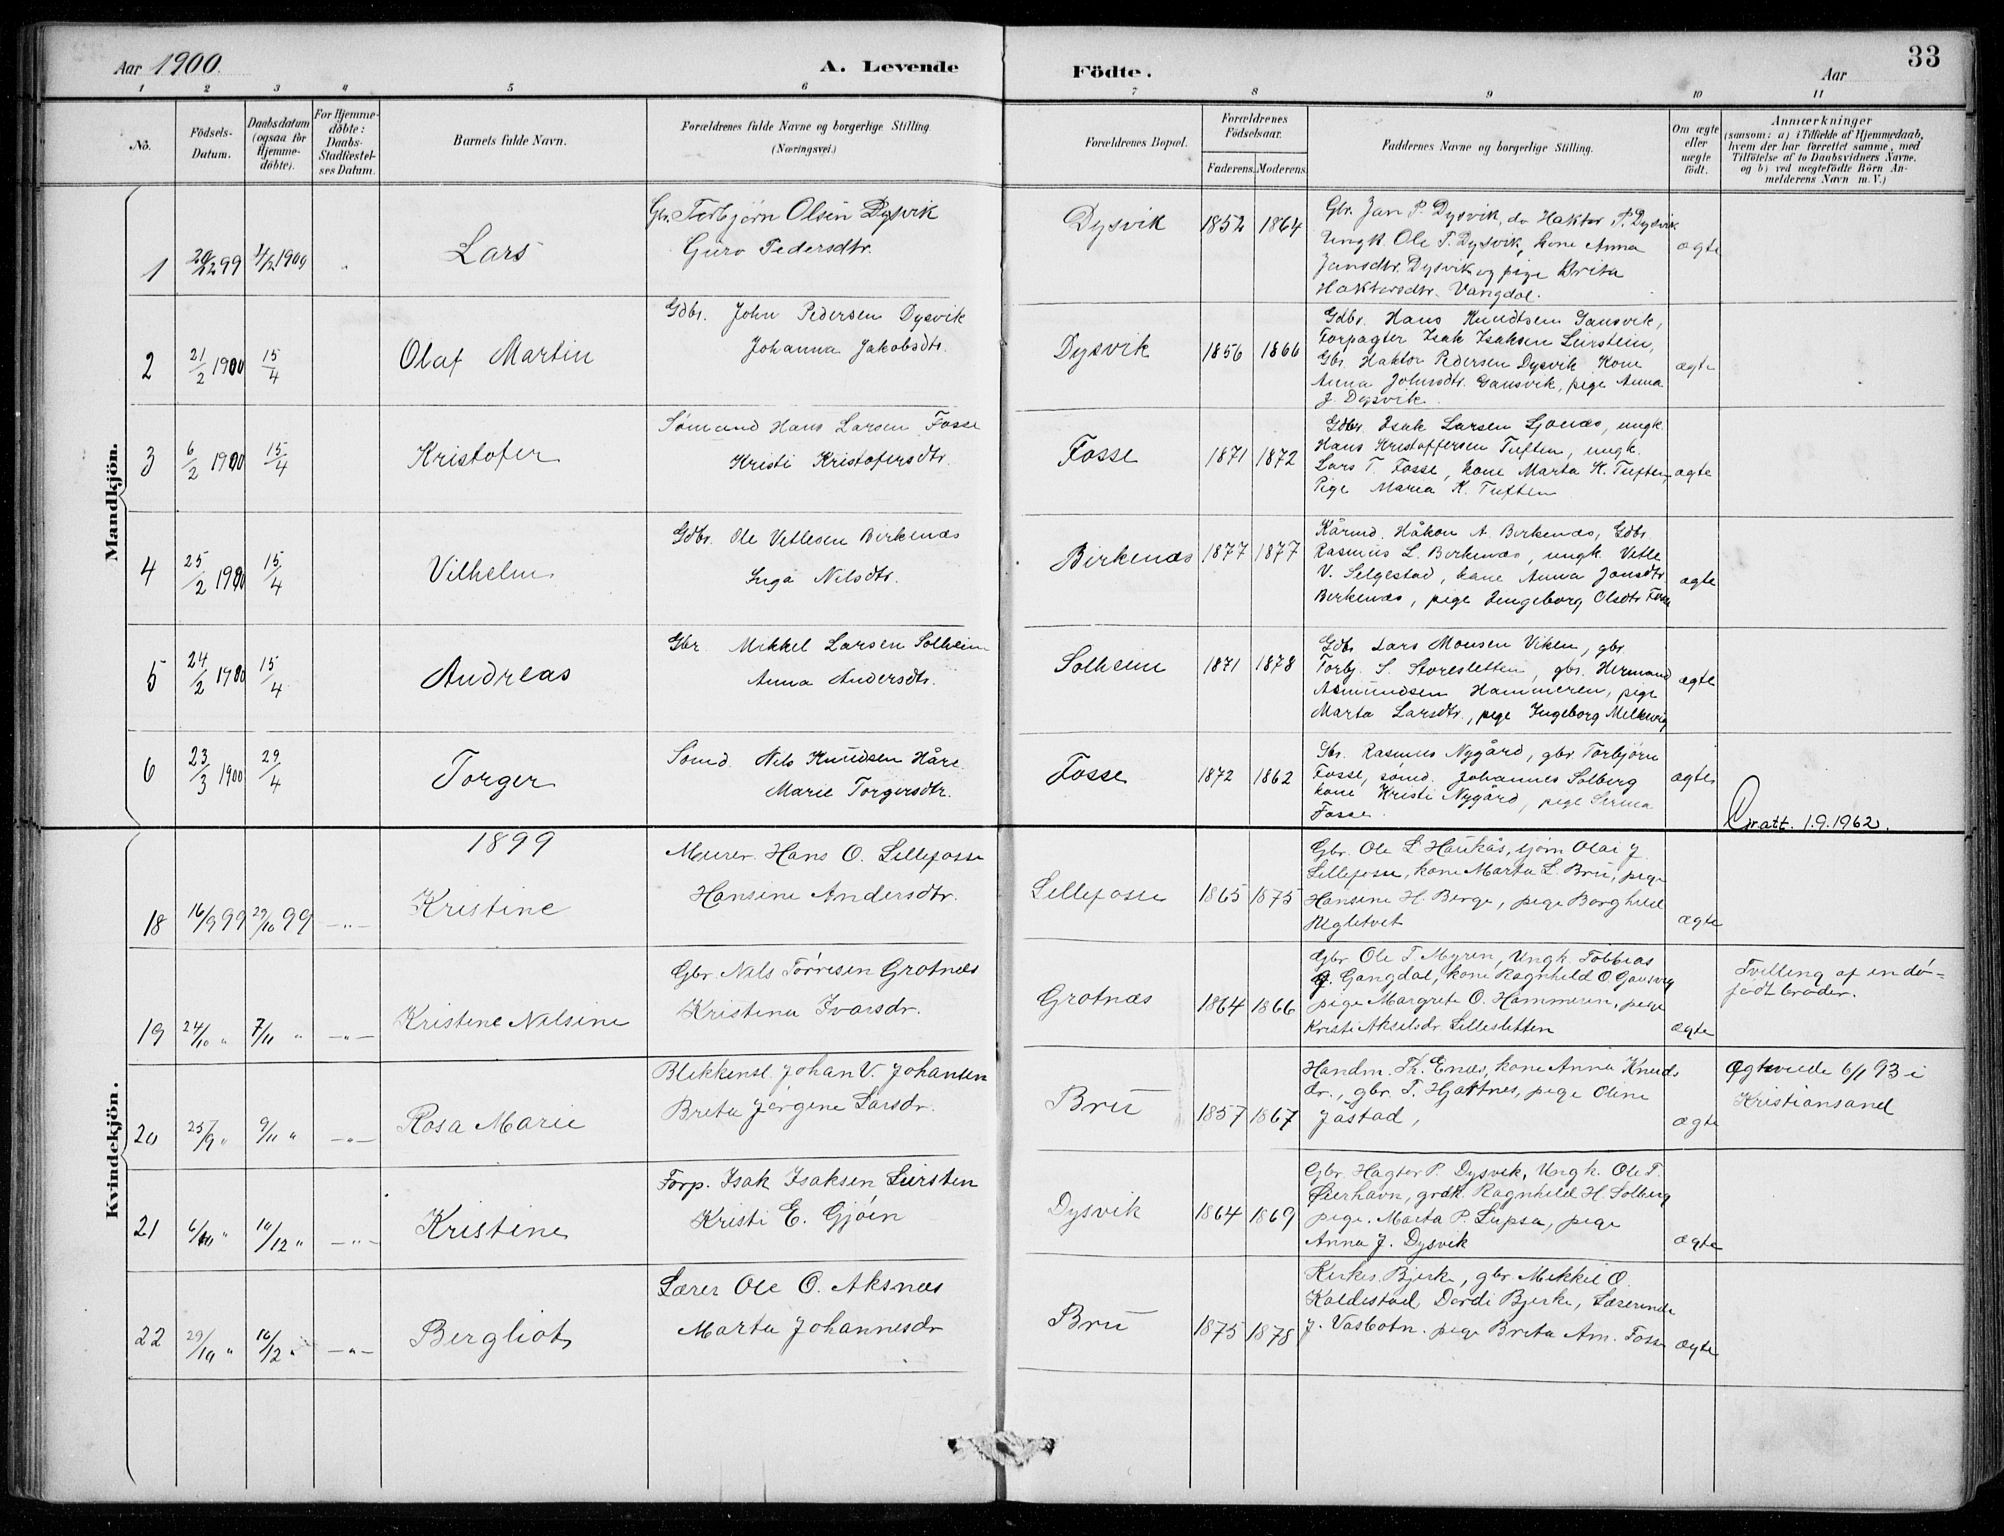 Aar 1900.
A. Levende
Födte.
Aar
33
1 2 3 4 5 6 7 8 9 10 11
No.
Födsels-
Datum.
Daabsdatum
(ogsaa for
Hjemme-
döbte).
For Hjemme-
döbte:
Daabs-
Stadfæstel-
ses Datum.
Barnets fulde Navn.
Forældrenes fulde Navne og borgerlige Stilling.
(Næringsvei.)
Forældrenes Bopæl.
Forældrenes
Födselsaar.
Faderens. Moderens.
Faddernes Navne og borgerlige Stilling.
Om ægte
eller
uægte
födt.
Anmærkninger
(saasom: a) i Tilfælde af Hjemmedaab,
hvem der har forrettet samme, med
Tilföielse af to Daabsvidners Navne.
og b) ved uægtefödte Börn An-
melderens Navn m. V.)
Mandkjön.
1 20/12 99 4/2 1900 Lars
Gbr. Torbjørn Olsen Dysvik
Guro Pedersdtr.
Dysvik 1852 1864
Gbr. Jan P. Dysvik, do Haktor P. Dysvik
Ungk. Ole T. Dysvik, kone Anna
Jansdtr. Dysvik og pige Brita
Haktorsdtr. Vangdal.
ægte
2 21/2 1900 15/4 Olaf Martin
Gdbr. John Pedersen Dysvik
Johanna Jakobsdtr.
Dysvik 1856 1866
Gdbr. Hans Knudtsen Gansvik,
Forpagter Isak Isaksen Lurstein,
Gbr. Haktor Pedersen Dysvik Kone
Anna Johnsdtr. Gansvik, pige Anna
J. Dysvik.
ægte
3 6/2 1900 15/4 Kristofer
Sømand Hans Larsen Fosse
Kristi Kristofersdtr.
Fosse 1871 1872
Gdbr. Isak Larsen Sjonæs, ungk.
Hans Kristoffersen Tuften, ungk.
Lars T. Fosse, kone Marta K. Tuften,
Pige Maria K. Tuften
ægte
4 25/2 1900 15/4 Vilhelm
Gdbr. Ole Vetlesen Birkenæs
Inga Nilsdtr.
Birkenæs 1877 1877
Kårmd. Håkon A. Birkenæs, Gdbr.
Rasmus L. Birkenæs, ungk. Vetle
V. Selgestad, kone Anna Jonsdtr
Birkenæs, pige Ingeborg Olsdtr Fosse
ægte
5 24/2 1900 15/4 Andreas
Gbr Mikkel Larsen Solheim
Anna Andersdtr.
Solheim 1871 1878
Gdbr Lars Monsen Viken, gbr.
Torbj. S. Storesletten, gbr. Hermand
Asmundsen Hammeren, pige
Marta Larsdtr., pige Ingeborg Melkevig
ægte
6 23/3 1900 29/4 Torger
Sømd. Nils Knudsen Håre
Marie Torgersdtr.
Fosse 1872 1862
Gbr. Rasmus Nygård, gbr Torbjørn
Fosse, sømd. Johannes Solberg
kone Kristi Nygård, pige Serina
Fosse.
ægte
Dratt. 1.9.1962.
Kvindekjön.
1899
18 16/9 99 29/10 99 —„— Kristine
Murer. Hans O. Lillefosse
Hansine Andersdtr.
Lillefosse 1865 1875
Gbr. Ole L Haukås, tjørn Olai J
Lillefosse, kone Marta L. Bru, pige
Hansine H. Berge, pige Borghild
Negletvet
ægte
19 24/10 „ 7/11 „ —„— Kristine Nilsine
Gbr. Nils Tørresen Grotnæs
Kristina Ivarsdr.
Grotnæs 1864 1866
Gbr Ole T. Myren, Ungk. Tobbias
J. Gangdal, kone Ragnhild O Gansvig
pige Margrete O. Hammeren, pige
Kristi Akselsdr Lillesletten
ægte
Tvilling af en dø-
født broder.
20 25/9 „ 9/11 „ —„— Rosa Marie
Blikkensl. Johan V. Johansen
Brita Jørgine Larsdr.
Bru 1857 1867
Handm. Th. Enæs, kone Anna Knuds
dr., gbr. T. Hjartnes, pige Oline
Jåstad,
ægte
Ægtviede 6/1 93 i
Kristiansand
21 6/10 „ 10/12 „ —„— Kristine
Forp. Isak Isaksen Lursten
Kristi E. Gjøen
Dysvik 1864 1869
Gbr. Hagtor P. Dysvik, Ungk. Ole T.
Øierhavn, grdk. Ragnhild H. Solberg
pige. Marta P. Lupsa, pige
Anna J. Dysvik
ægte
22 29/10 „ 10/12 „ —„— Bergliot
Lærer Ole O. Aksnæs
Marta Johannesdr
Bru 1875 1878
Kirkes. Bjerke, gbr. Mikkel O.
Kaldestad Dordi Bjerke, Lærerinde
J. Vasbotn. pige Brita Am. Fosse
ægte